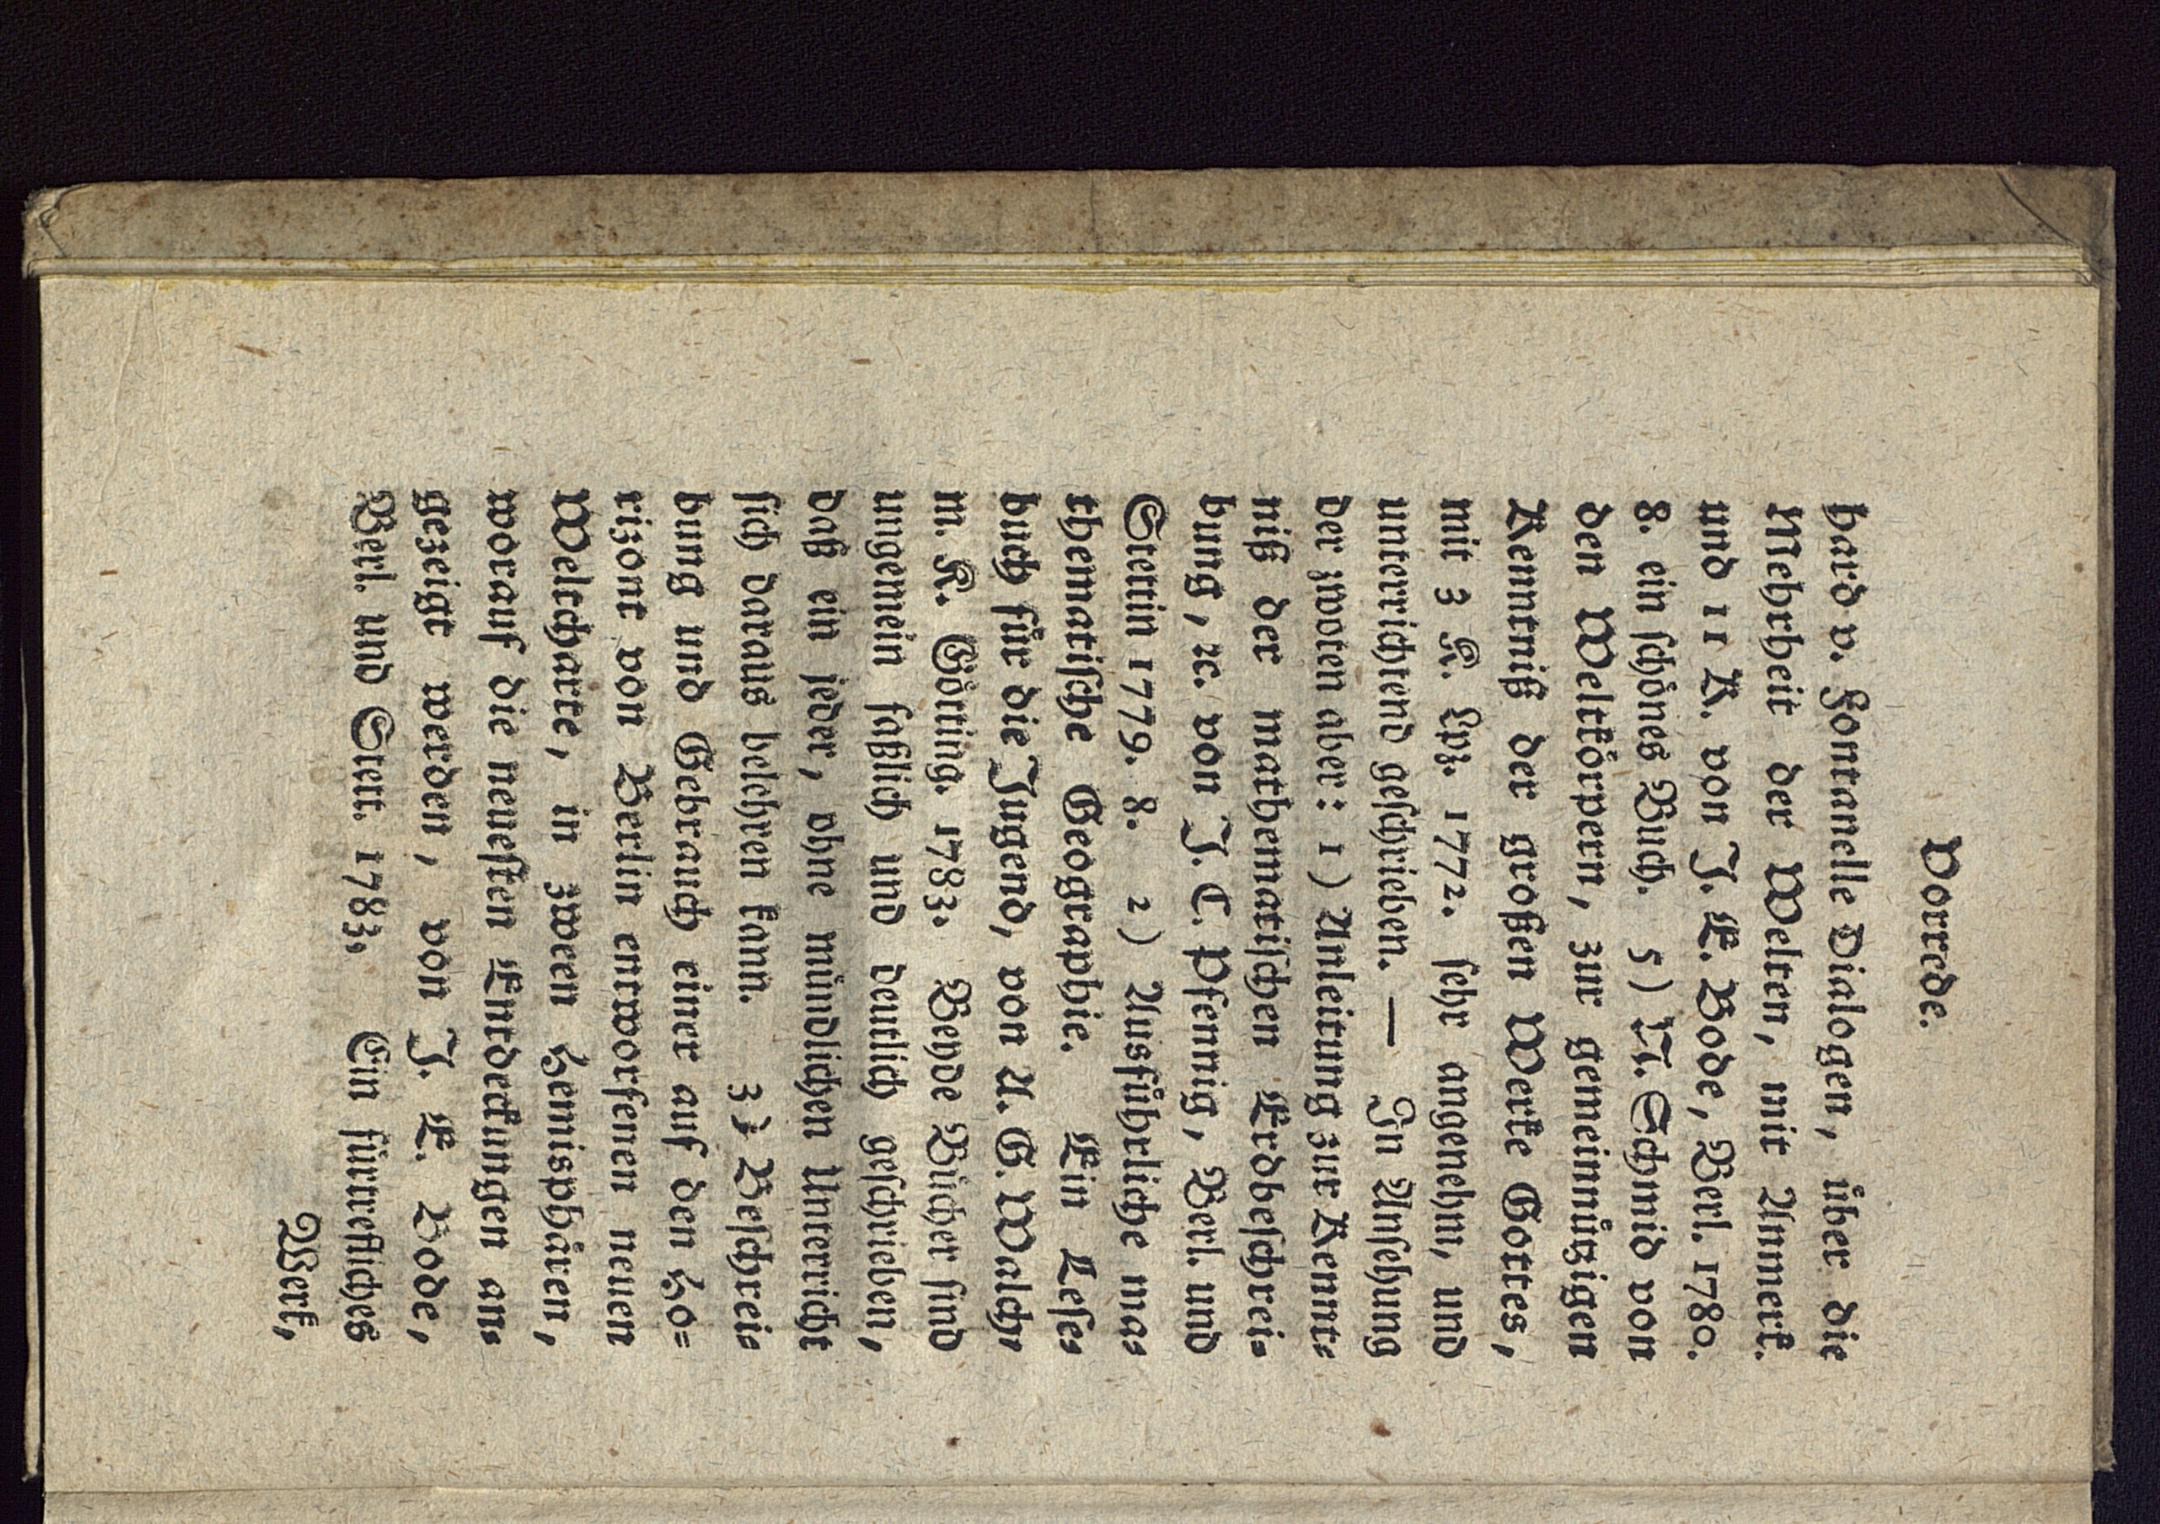 Vorrede.
hard v. Fontanelle Dialogen, über die
Mehrheit der Welten, mit Anmerk.
und 11 K. von J. E. Bode, Berl. 1780.
8. ein schönes Buch. 5) N. Schmid von
den Weltkörpern, zur gemeinnützigen
Kenntniß der großen Werke Gottes,
mit 3 K. Lpz. 1772. sehr angenehm, und
unterrichtend geschrieben. — In Ansehung
der zwoten aber: 1) Anleitung zur Kennt-
niß der mathematischen Erdbeschrei-
bung, ꝛc. von J. C. Pfennig, Berl. und
Stettin 1779. 8. 2) Ausführliche ma-
thematische Geographie. Ein Lese-
buch für die Jugend, von A. G. Walch,
m. K. Götting. 1783. Beyde Bücher sind
ungemein faßlich und deutlich geschrieben,
daß ein jeder, ohne mündlichen Unterricht
sich daraus belehren kann. 3) Beschrei-
bung und Gebrauch einer auf den Ho=
rizont von Berlin entworfenen neuen
Weltcharte, in zween Hemisphären,
worauf die neuesten Entdeckungen an-
gezeigt werden, von J. E. Bode,
Berl. und Stett. 1783. Ein fürtrefliches
Werk,